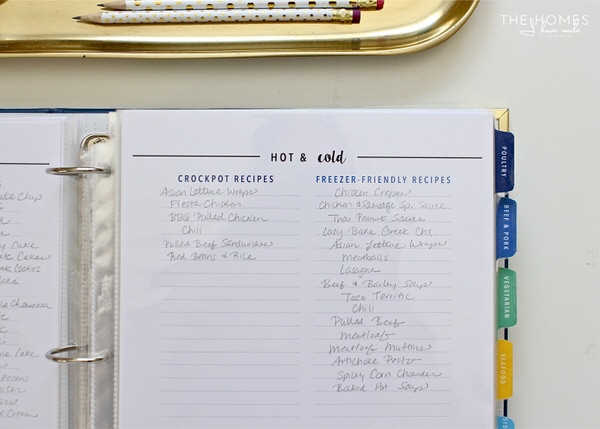 THE HOMES
I have made
HOT & cold
CROCKPOT RECIPES
Asian Lettuce Wraps
Fiesta Chicken
BBQ Pulled Chicken
Chili
Pulled Beef Sandwiches
Red Beans & Rice
FREEZER-FRIENDLY RECIPES
Chicken Crepes
Chicken & Sausage Sp. Sauce
Thai Peanut Sauce
Lazy Bake Greek Chi.
Asian Lettuce Wraps
Meatballs
Lasagna
Beef & Barley Soup
Taco Terrific
Chili
Pulled Beef
Meatloaf
Meatloaf Muffins
Artichoke Pesto
Spicy Corn Chowder
Baked Pot. Soup
POULTRY
BEEF & PORK
VEGETARIAN
SEAFOOD
Cake
Cookies
Cake
Cream